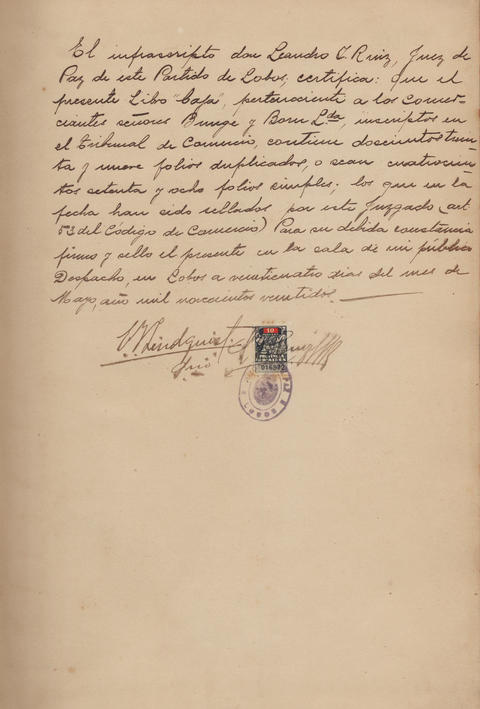 El infrascripto don Leandro T. Ruiz, Juez de
Paz de este Partido de Lobos, certifica: que el
presente Libo "Caja", perteneciente a los comer-
ciantes señores Bunge y Born Lda, inscriptos en
el Tribunal de Comercio, contiene doscientos trein-
ta y nueve folios duplicados, o sean cuatrocien-
tos setenta y ocho folios simples; los que en la
fecha han sido sellados por este Juzgado (art.
53 del Código de Comercio) Para su debida constancia
firmo y sello el presente en la sala de mi público
Despacho, en Lobos a veinticuatro dias del mes de
Mayo, año mil novecientos veintidos.
Lindquist
10
016372
Lobos